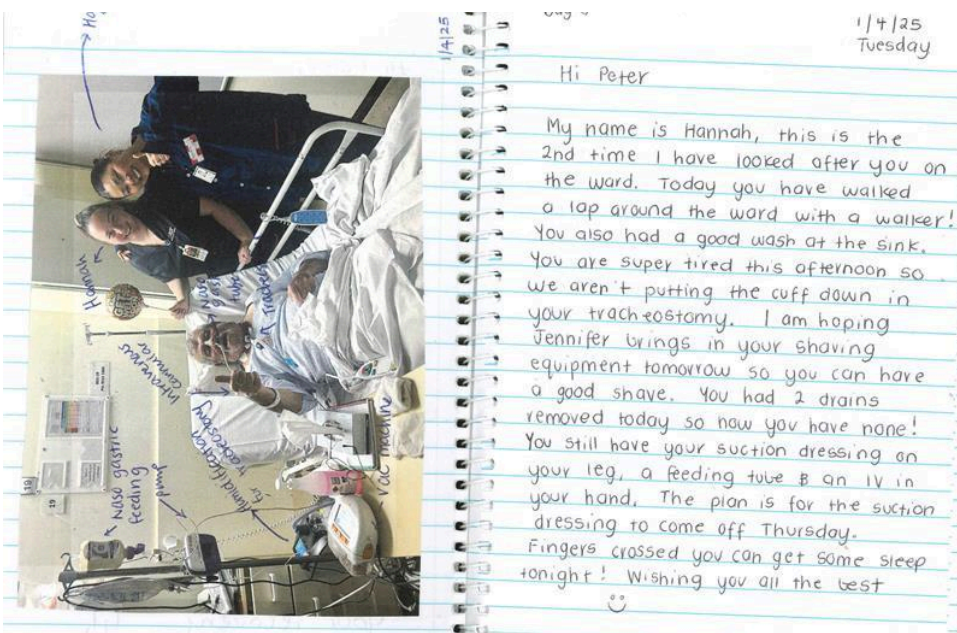 1/4/25
Hannah
Intravenous
cannular
Naso gastric
feeding
pump
Humidification
for
tracheostomy
Naso
gastric
tube
Vac machine
1/4/25
Tuesday
Hi Peter
My name is Hannah, this is the
2nd time I have looked after you on
the ward. Today you have walked
a lap around the ward with a walker!
You also had a good wash at the sink.
You are super tired this afternoon so
we aren't putting the cuff down in
your tracheostomy. I am hoping
Jennifer brings in your shaving
equipment tomorrow so you can have
a good shave. You had 2 drains
removed today so now you have none!
You still have your suction dressing on
your leg, a feeding tube & an IV in
your hand. The plan is for the suction
dressing to come off Thursday.
Fingers crossed you can get some sleep
tonight! Wishing you all the best